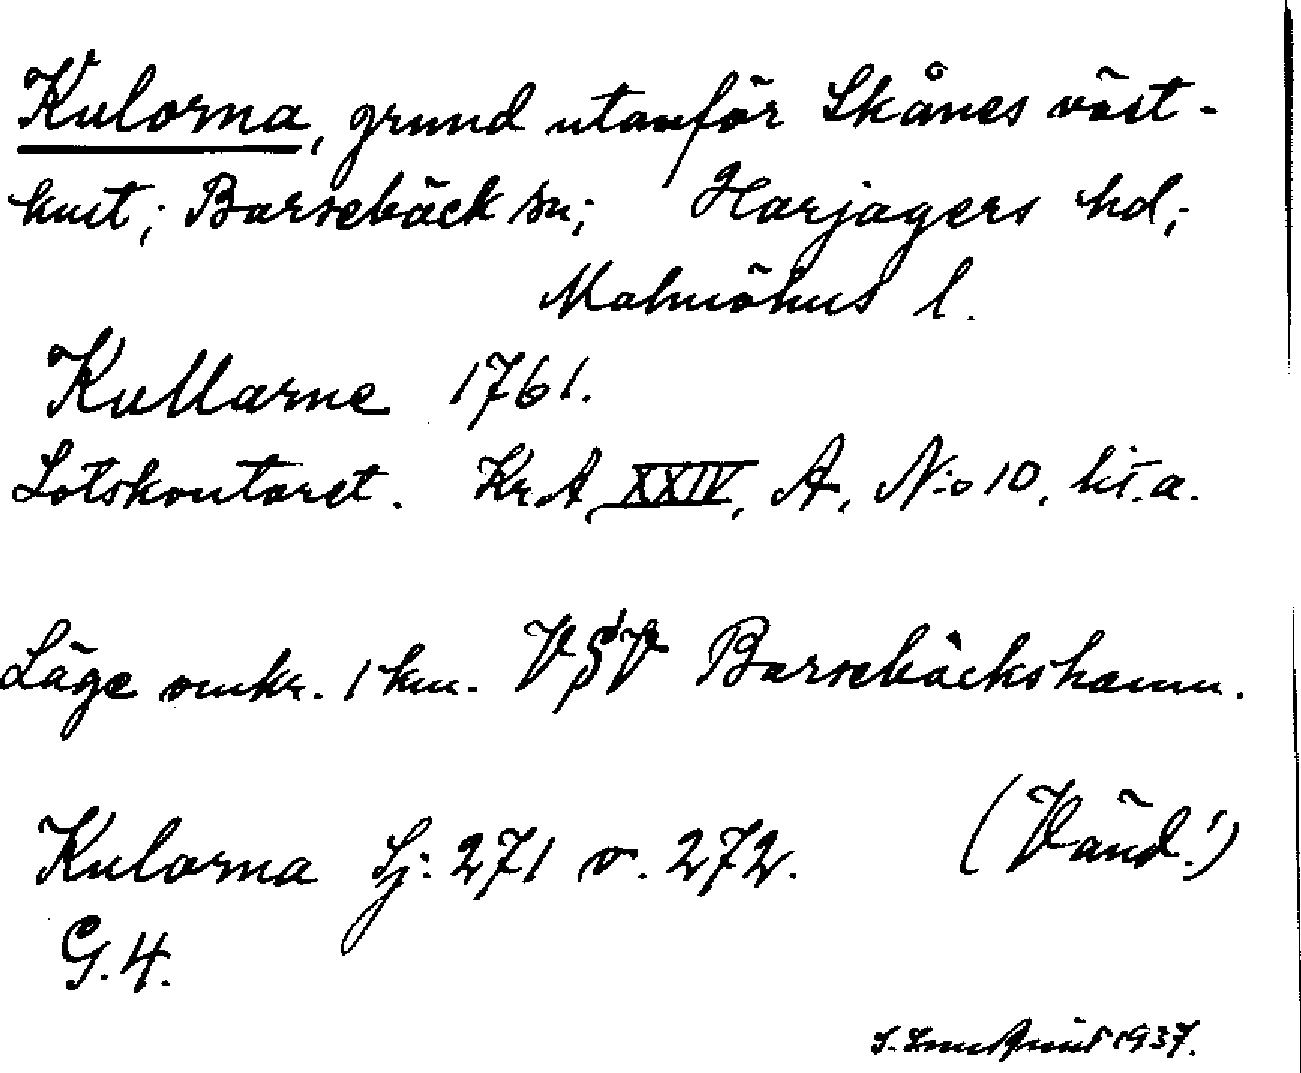 Kulorna, grund utanför Skånes väst-
kust; Barsebäck sn; Harjagers hd;
Malmöhus l.
Kullarne 1761.
Lotskontoret. KrA, XXIV, A, N:o 10, lit. a.
Läge omkr. 1 km. VSV Barsebäckshamn.
Kulorna Sj: 271 o. 272. (Vänd!)
G. 4.
1937.